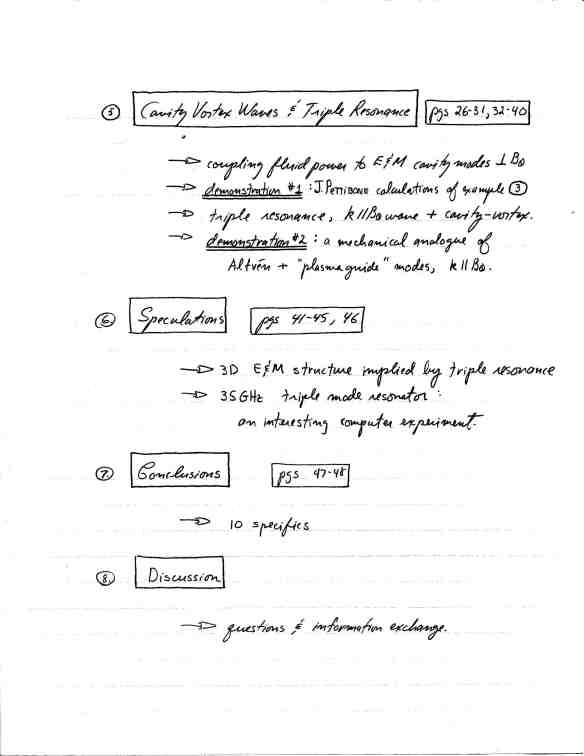 ⑤ Cavity Vortex Waves & Triple Resonance pgs 26-31, 32-40
→ coupling fluid power to E&M cavity modes ⊥ B₀
→ demonstration #1 : J. Pettibone calculations of example ③
→ triple resonance, k∥B₀ wave + cavity-vortex.
→ demonstration #2 : a mechanical analogue of
Alfvén + "plasma guide" modes, k∥B₀.
⑥ Speculations pgs 41-45, 46
→ 3D E&M structure implied by triple resonance
→ 35GHz triple mode resonator :
an interesting computer experiment.
⑦ Conclusions pgs 47-48
→ 10 specifics
⑧ Discussion
→ questions & information exchange.